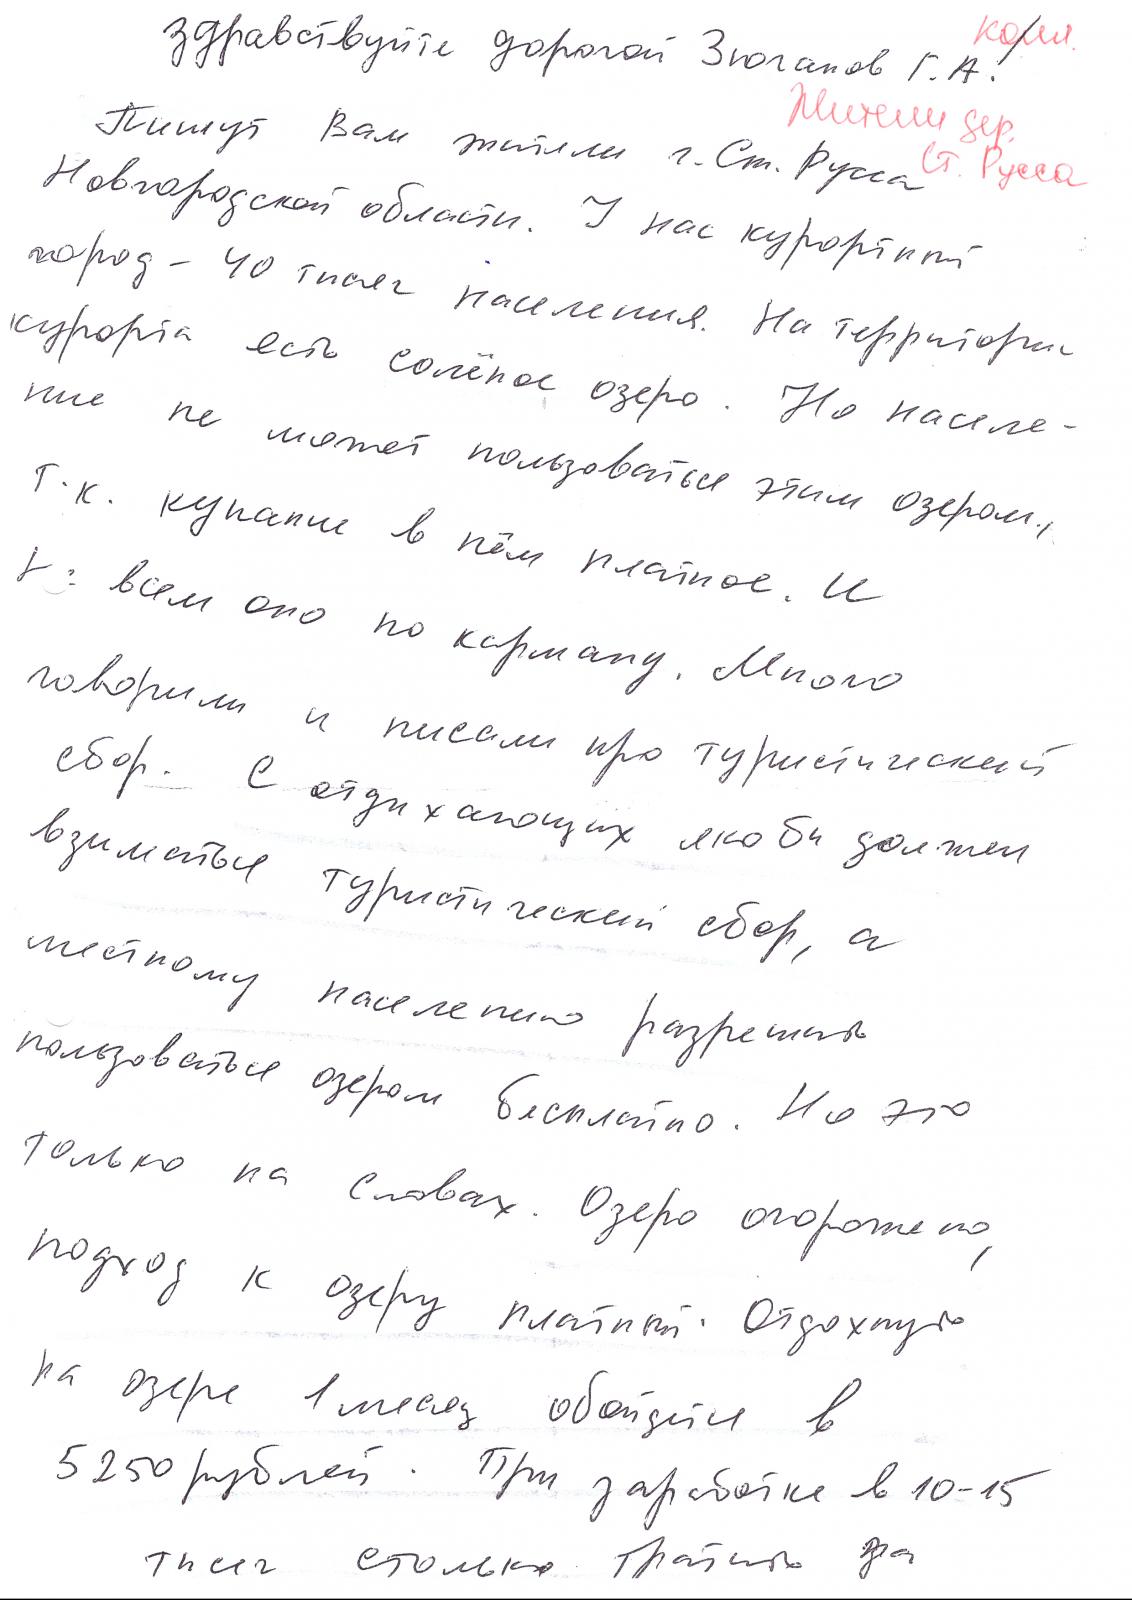 комм.
Здравствуйте дорогой Зюганов Г.А.!
Жители дер.
Ст. Русса
Пишут Вам жители г. Ст. Русса
Новгородской области. У нас курортный
город - 40 тысяч населения. На территории
курорта есть солёное озеро. Но населе-
ние не может пользоваться этим озером,
т.к. купание в нём платное. И
всем оно по карману. Много
говорили и писали про туристический
сбор. С отдыхающих якобы должен
взиматься туристический сбор, а
местному населению разрешать
пользоваться озером бесплатно. Но это
только на словах. Озеро огорожено,
подход к озеру платный. Отдохнуть
на озере 1 месяц обойдётся в
5250 рублей. При заработке в 10-15
тысяч столько тратить за